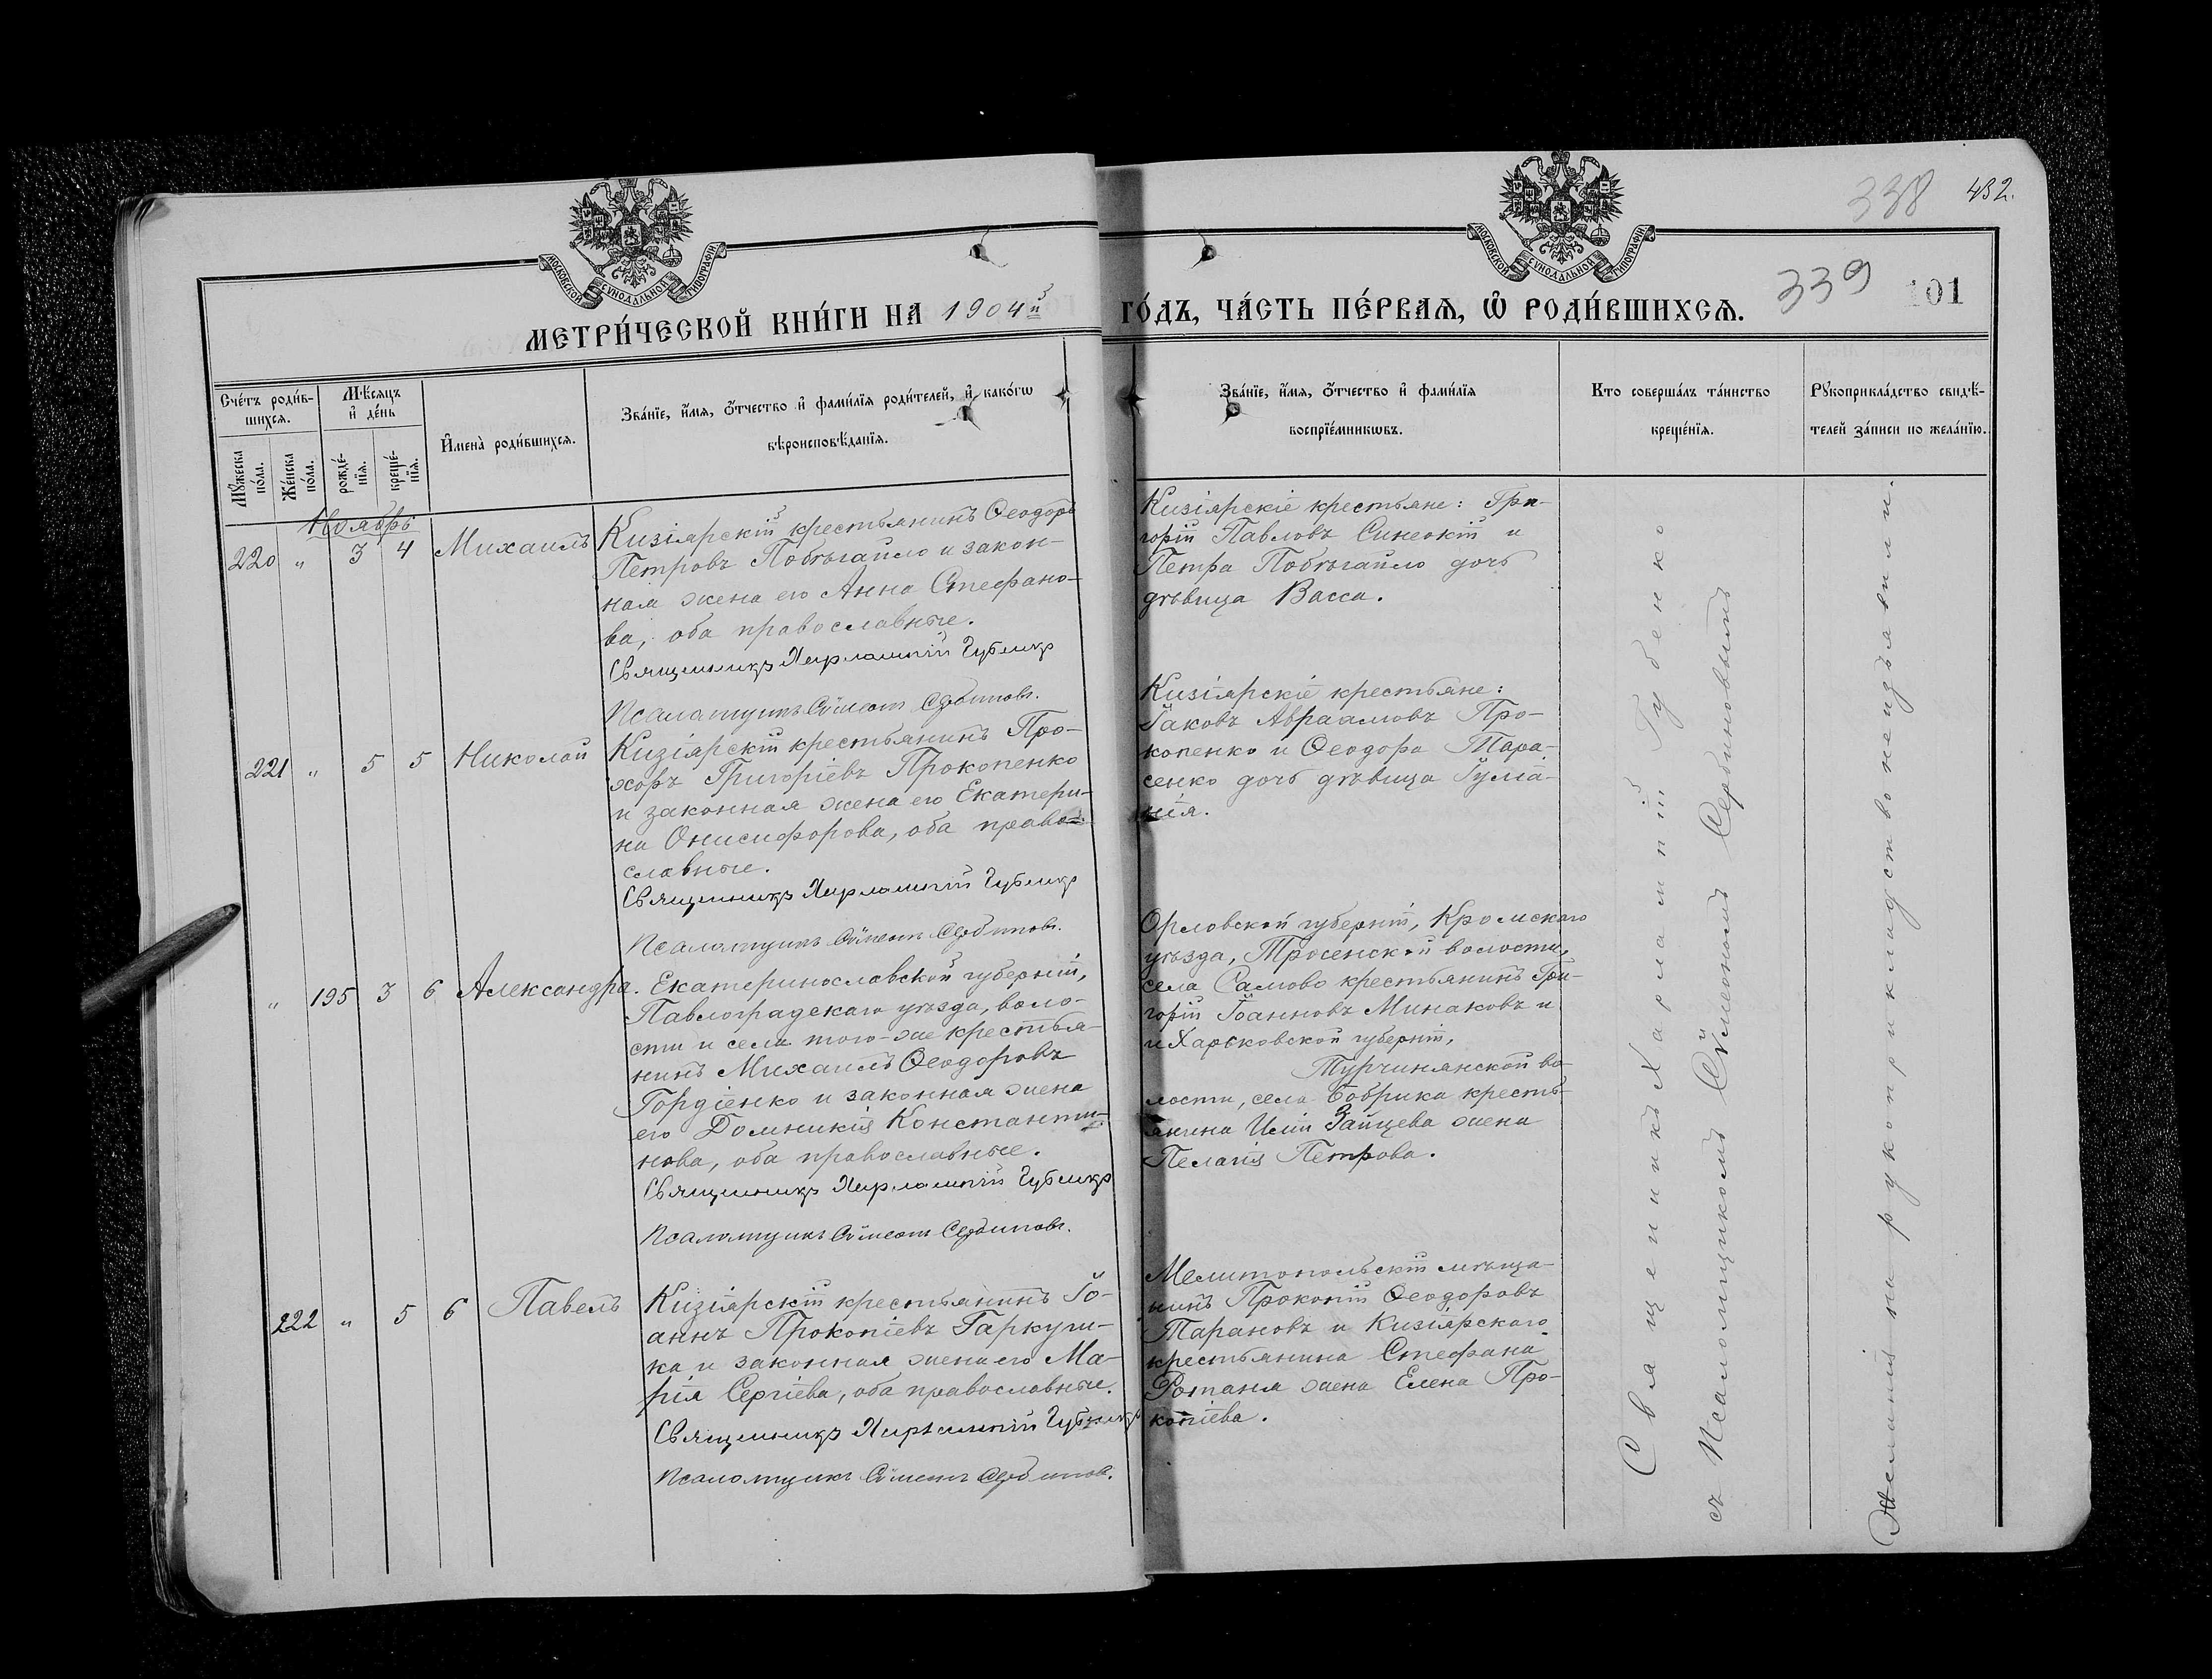 338 432.
339 101
МОСКОВСКОЙ СѴНОДАЛЬНОЙ ТИПОГРАФІИ
МОСКОВСКОЙ СѴНОДАЛЬНОЙ ТИПОГРАФІИ
МЕТРИ́ЧЕСКОЙ КНИ́ГИ НА 1904й
ГО́ДЪ, ЧА́СТЬ ПЕ́РВАѦ, Ѽ РОДИ́ВШИХСѦ.
Сче́тъ роди́в-
шихсѧ.
Мѣ́сяцъ
и҆ де́нь
Мꙋ́жеска по́ла.
Же́нска по́ла.
рожде́-
нїѧ.
креще́-
нїѧ.
И҆мена̀ роди́вшихсѧ.
Зва́нїе, и҆́мѧ, о҆́тчество и҆ фами́лїѧ роди́телей, и҆ како́гѡ
вѣроисповѣ́данїѧ.
Зва́нїе, и҆́мѧ, о҆́тчество и҆ фами́лїѧ
воспрїе́мникѡвъ.
Кто соверша́лъ та́инство
креще́нїѧ.
Рꙋкоприкла́дство свидѣ́-
телей за́писи по жела́нїю.
Ноябрь
220 " 3 4 Михаилъ
Кизіярскій крестьянинъ Ѳеодоръ
Петровъ Побѣгайло и закон-
ная жена его Анна Стефано-
ва, оба православные.
Священникъ Харлампій Губенко
Псаломщикъ Сѵмеонъ Сербиновъ.
Кизіярскіе крестьяне: Гри-
горій Павловъ Синеокій и
Петра Побѣгайло дочь
дѣвица Васса.
221 " 5 5 Николай
Кизіярскій крестьянинъ Про-
хоръ Григоріевъ Прокопенко
и законная жена его Екатери-
на Онисифорова, оба право-
славные.
Священникъ Харлампій Губенко
Псаломщикъ Сѵмеонъ Сербиновъ.
Кизіярскіе крестьяне:
Іаковъ Авраамовъ Про-
копенко и Ѳеодора Тара-
сенко дочь дѣвица Іулiа-
нія.
" 195 3 6 Александра.
Екатеринославской губерніи,
Павлоградскаго уѣзда, воло-
сти и села того-же крестья-
нинъ Михаилъ Ѳеодоровъ
Гордіенко и законная жена
его Домникія Константи-
нова, оба православные.
Священникъ Харлампій Губенко
Псаломщикъ Сѵмеонъ Сербиновъ.
Орловской губерніи, Кромскаго
уѣзда, Тросенской волости,
села Самово крестьянинъ Гри-
горій Іоанновъ Минаковъ и
и Харьковской губерніи,
Турчинянской во-
лости, села Бобрика кресть-
янина Иліи Зайцева жена
Пелагія Петрова.
222 " 5 6 Павелъ
Кизіярскій крестьянинъ Іо-
аннъ Прокопіевъ Гаркуши-
ка и законная жена его Ма-
рія Сергіева, оба православные.
Священникъ Харлампій Губенко
Псаломщикъ Сѵмеонъ Сербиновъ.
Мелитопольскій мѣща-
нинъ Прокопій Ѳеодоровъ
Тарановъ и Кизіярскаго
крестьянина Стефана
Ротаня жена Елена Про-
копіева.
Священникъ Харлампій Губенко
съ Псаломщикомъ Сѵмеономъ Сербиновымъ
Желанія на рукоприкладство не изъявили.